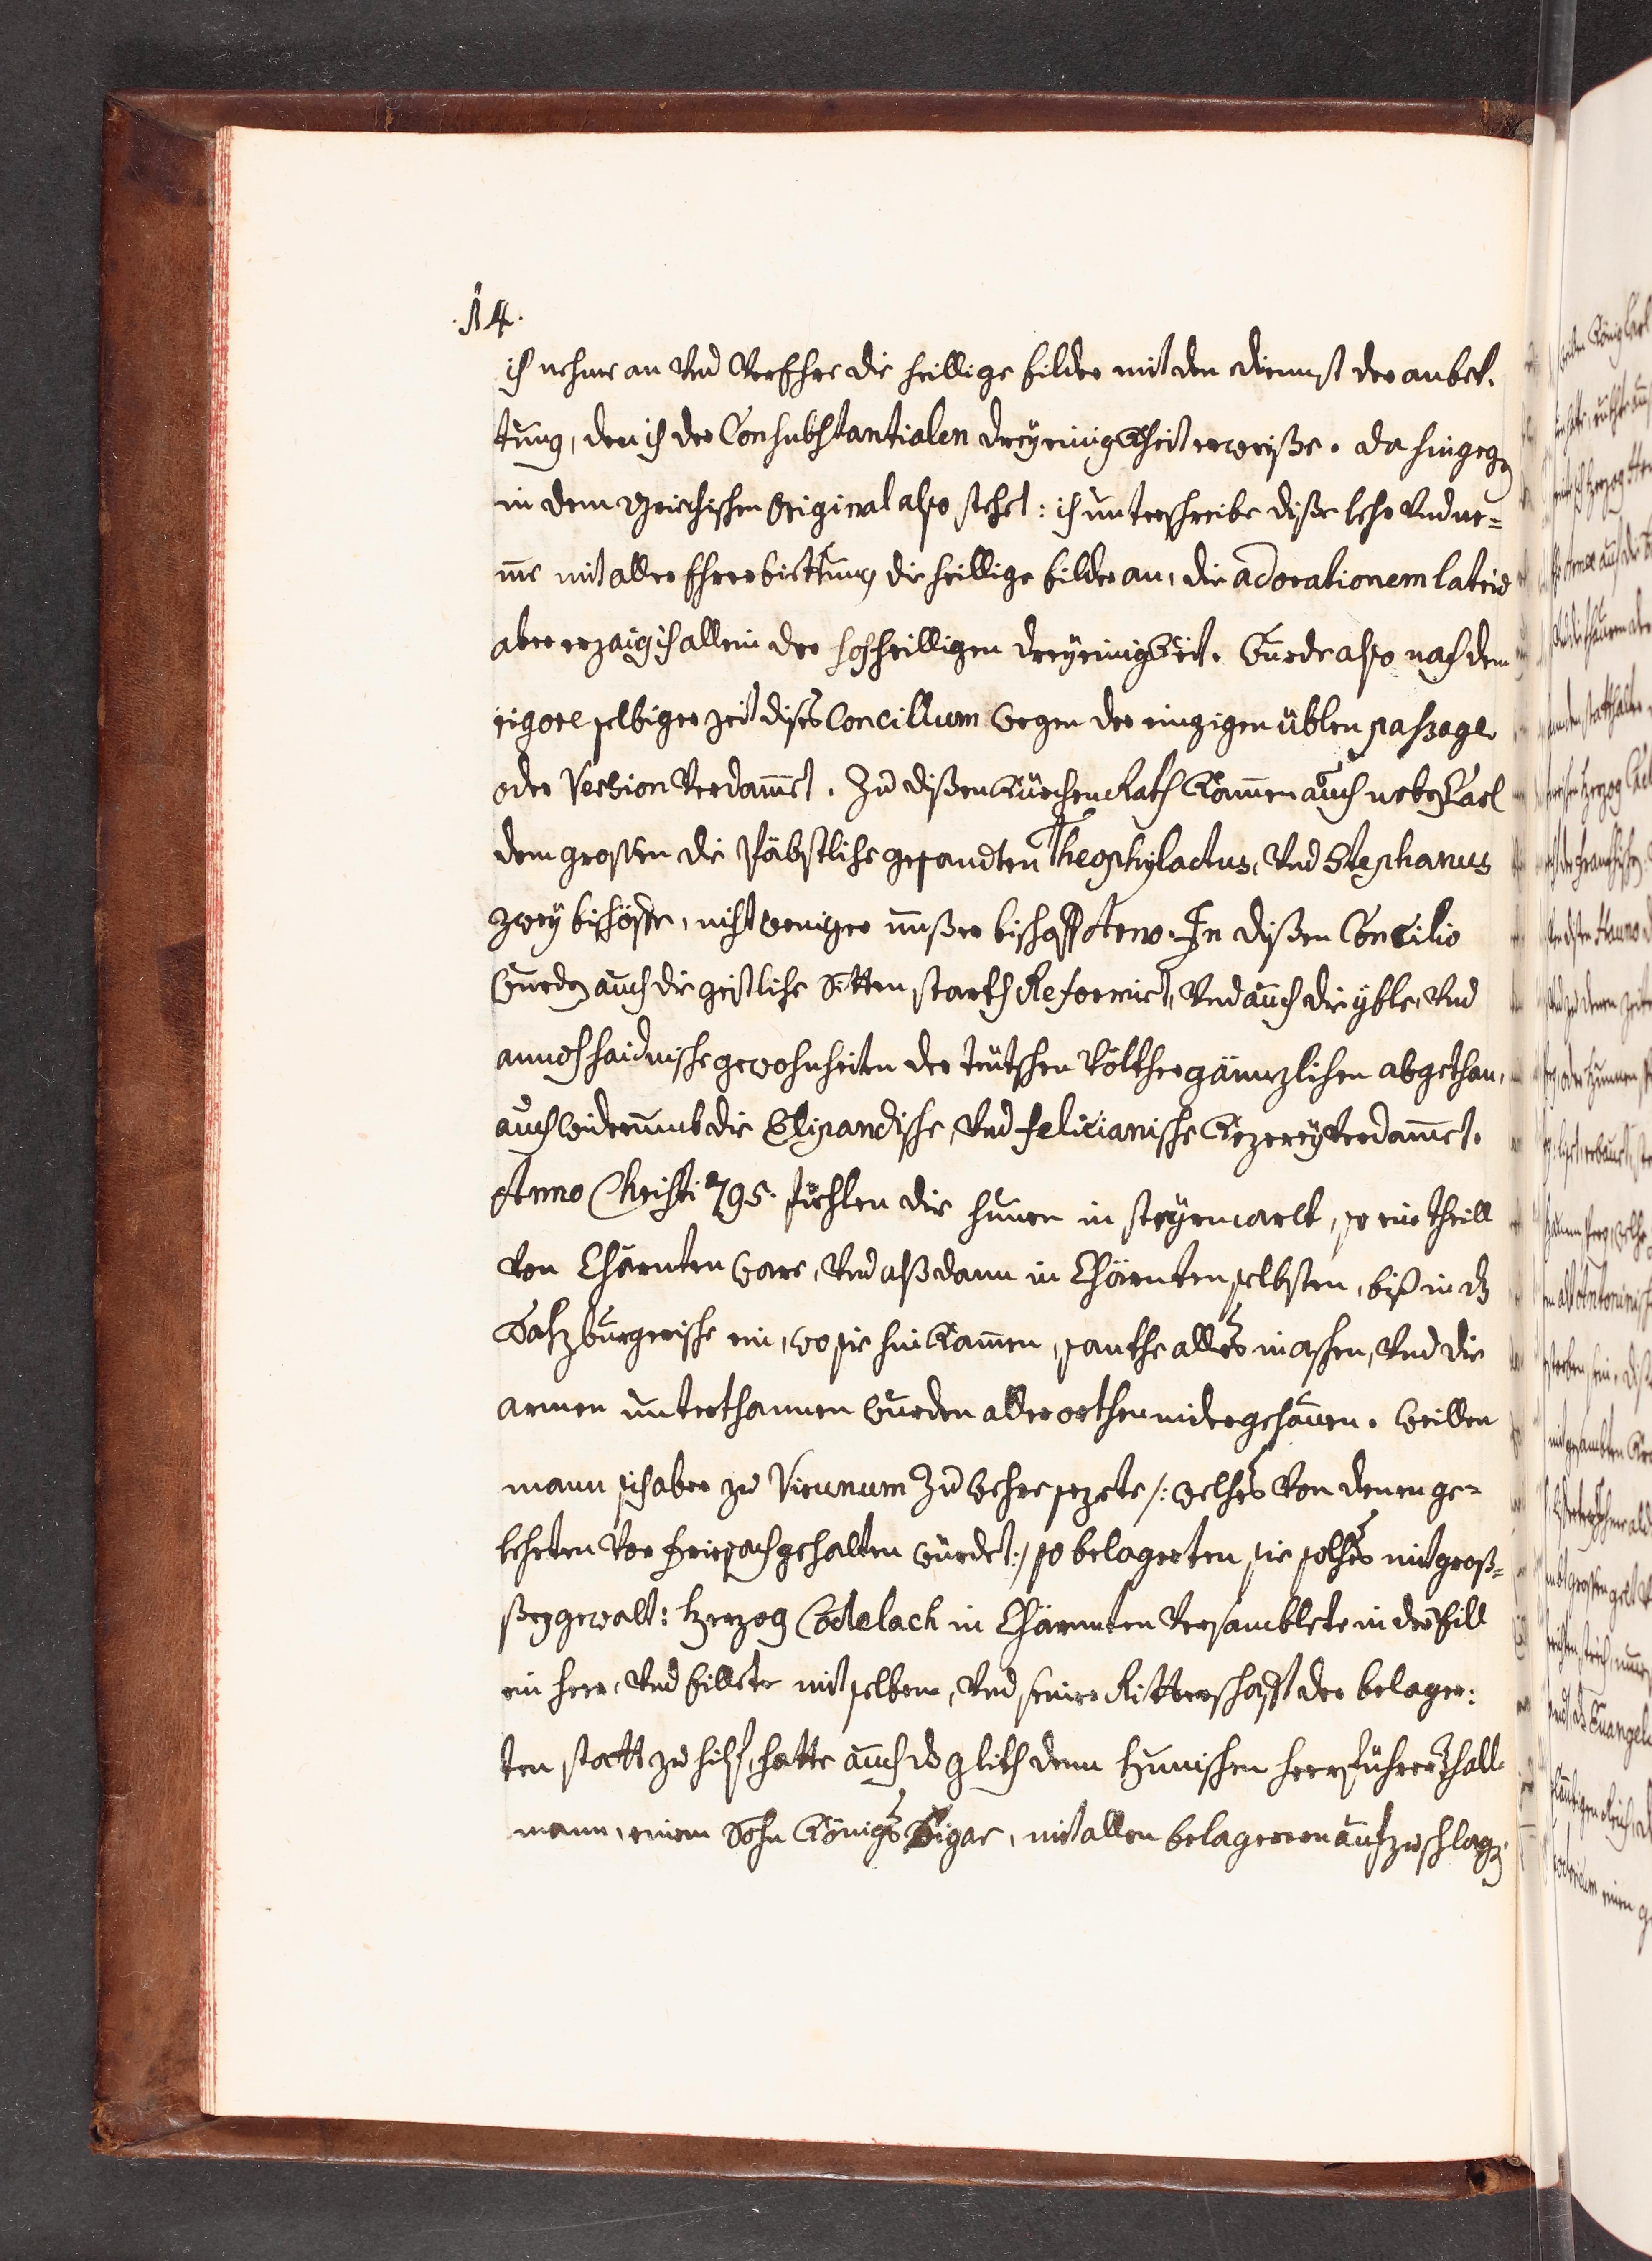 .14.
ich nehme an Vnd Verehre die heillige bilder mit den dienst der anbet-
tung, den ich der Consubstantialen dreyeinigkheit erweiße. da hingegen
in dem Griechischen Original also stehet: ich unterschreibe diße lehr Vnd ne=
me mit aller Ehrerbiettung die heillige bilder an, die adorationem latriæ
aber erzaig ich allein der hochheilligen dreyeinigkeit. Wurde also nach dem
rigore selbiger zeit dises Concilium wegen der einzigen üblen passage
oder Version Verdammet. Zu dißen Kürchen Rath kommen auch neben Carl
dem grossen die Päbstliche gesandten Theophylactus, Vnd Stephanus
zwey bischöffe, nicht weniger unßer bischoff Arno. In dißen Concilio
wurden auch die geistliche Sitten starkh Reformiert, Vnd auch die yble, Vnd
annoch haidnische gewohnheiten der teutschen Völkher gänzlichen abgethan,
auch widerumb die Elipandische, Vnd felicianische Kezerey Verdammet.
Anno Christi 795. fiehlen die Hunen in steyrmarkt, so ein theill
von Chärnten ware, Vnd alß dann in Chärnten selbsten, biß in das
Salzburgerische ein, wo sie hin kammen, sankhe alles in aschen, Vnd die
armen unterthannen wurden aller orthen nidergehauen. weillen
mann sich aber zu Virunum zu wehre sezete /: welches von denen ge=
lehrten vor friesach gehalten würdet :/ so belagerten sie solches mit groß=
ßer gewalt: Herzog Godelach in Chärnten Versamblete in der Eill
ein heer, Vnd Eillete mit selben, Vnd seiner Ritterschafft der belager:
ten statt zu hilf, hatte auch das glikh denn Hunischen heerführer Thall-
mann, einem Sohn Königs Bigar, mit allen belagerern auf zu schlagen,